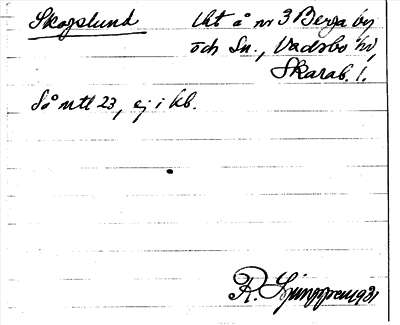 Skogslund
Unt å nr 3 Berga by
och Sn., Vadsbo hd,
Skarab. l.
Så mtl 23, ej i kb.
R. 1931